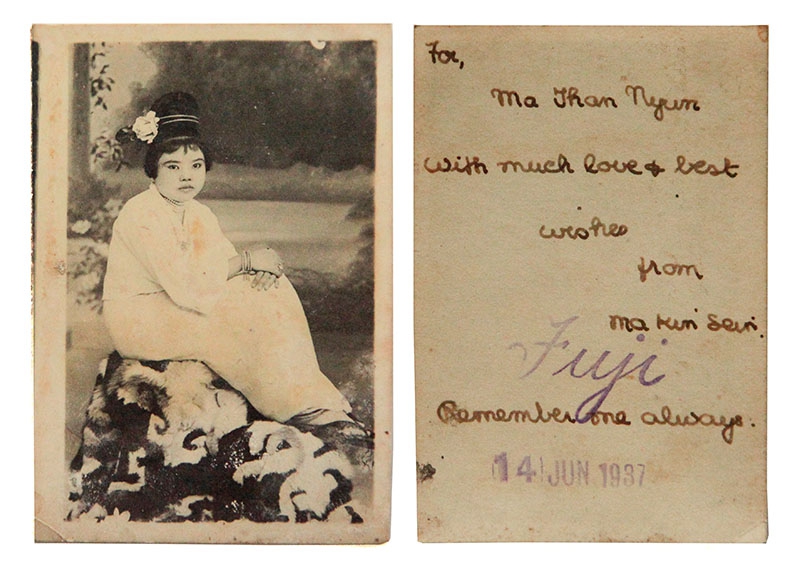 For,
Ma Than Nyun
With much love & best
wishes
from
Ma Kin Sein.
Fuji
Remember me always.
14 JUN 1937